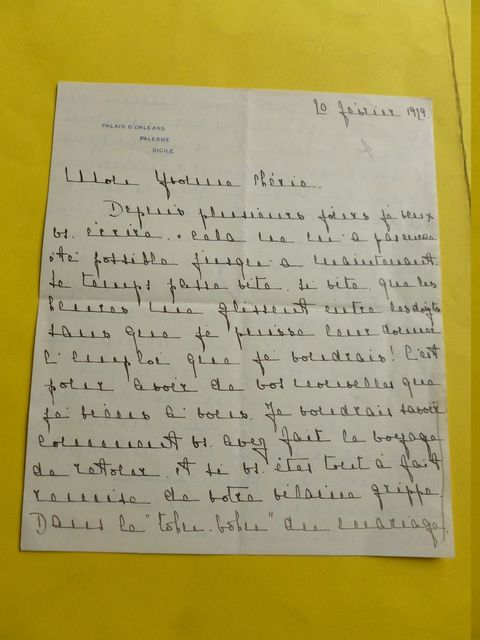 20 février 1929
PALAIS D'ORLÉANS
PALERME
SICILE
Mon Yvonne Chérie.
Depuis plusieurs jours je veux
vs. écrire. & cela ne m'a pas encore
été possible jusqu'à maintenant.
Le temps passe vite. si vite. que les
heures me glissent entre les doigts
sans que je puisse leur donner
l'emploi que je voudrais! C'est
pour avoir de vos nouvelles que
je viens à vous. Je voudrais savoir
comment vs. avez fait le voyage
de retour. et si vs. êtes tout à fait
remise de votre vilaine grippe.
Dans le "tohu. bohu" du mariage,